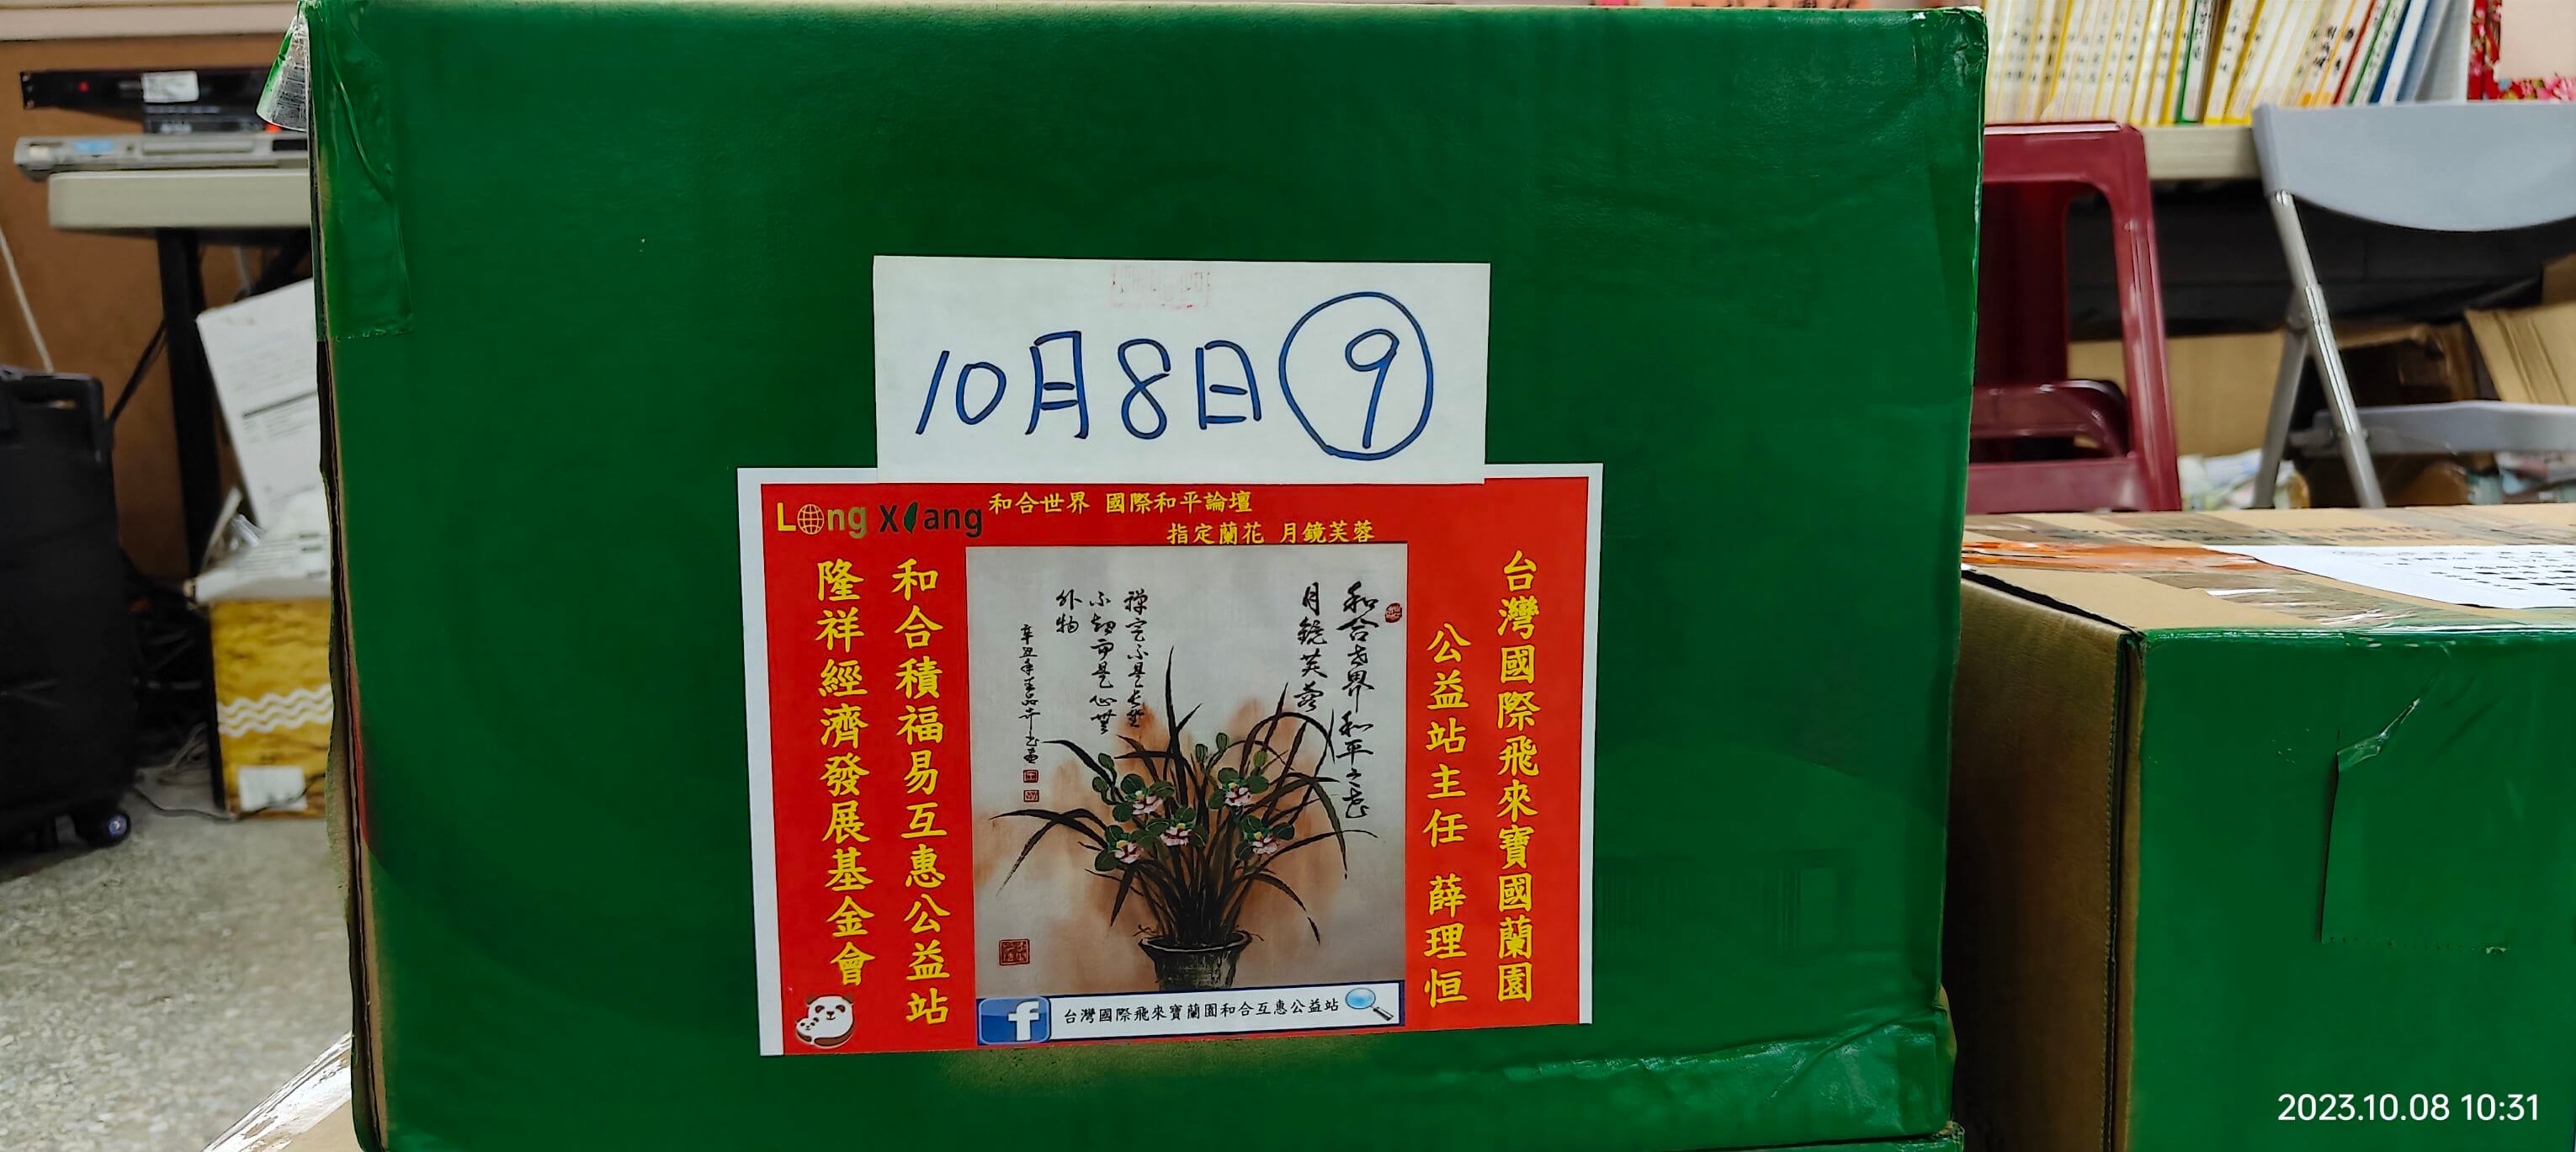 10月8日⑨
Long Xiang
和合世界 國際和平論壇
指定蘭花 月鏡芙蓉
台灣國際飛來寶國蘭園
公益站主任 薛理恒
和合世界和平之花
月鏡芙蓉
禪定不是長坐
不動而是心無
外物
和合積福易互惠公益站
隆祥經濟發展基金會
f
台灣國際飛來寶蘭園和合互惠公益站
2023.10.08 10:31